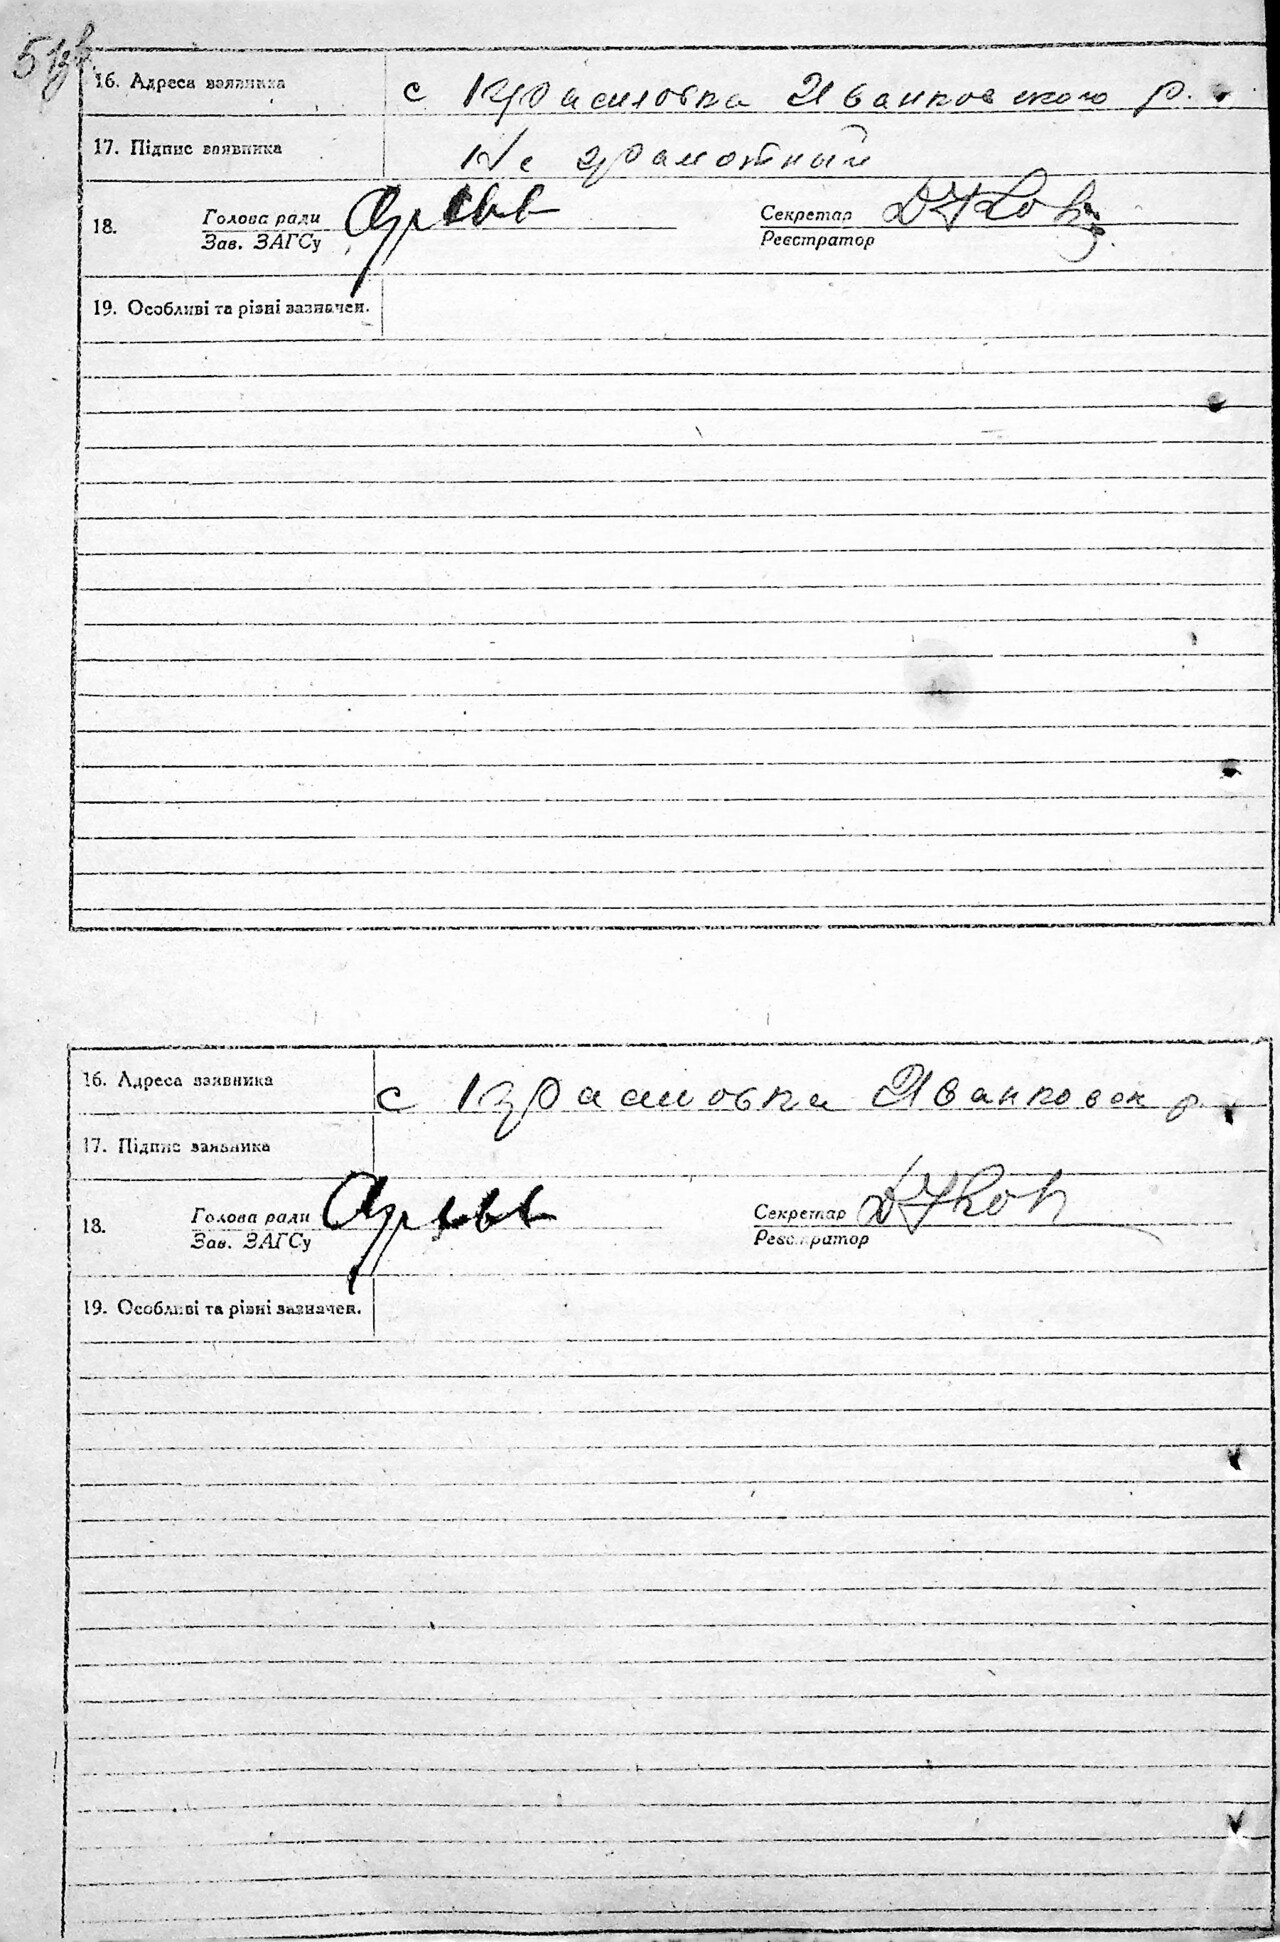 51зв.
16. Адреса заявника с Красиловка Иванковского р.
17. Підпис заявника Не грамотный
18. Голова ради Секретар
Зав. ЗАГСу Реєстратор
19. Особливі та різні зазначен.
16. Адреса заявника с Красиловка Иванковск р.
17. Підпис заявника
18. Голова ради Секретар
Зав. ЗАГСу Реєстратор
19. Особливі та різні зазначен.